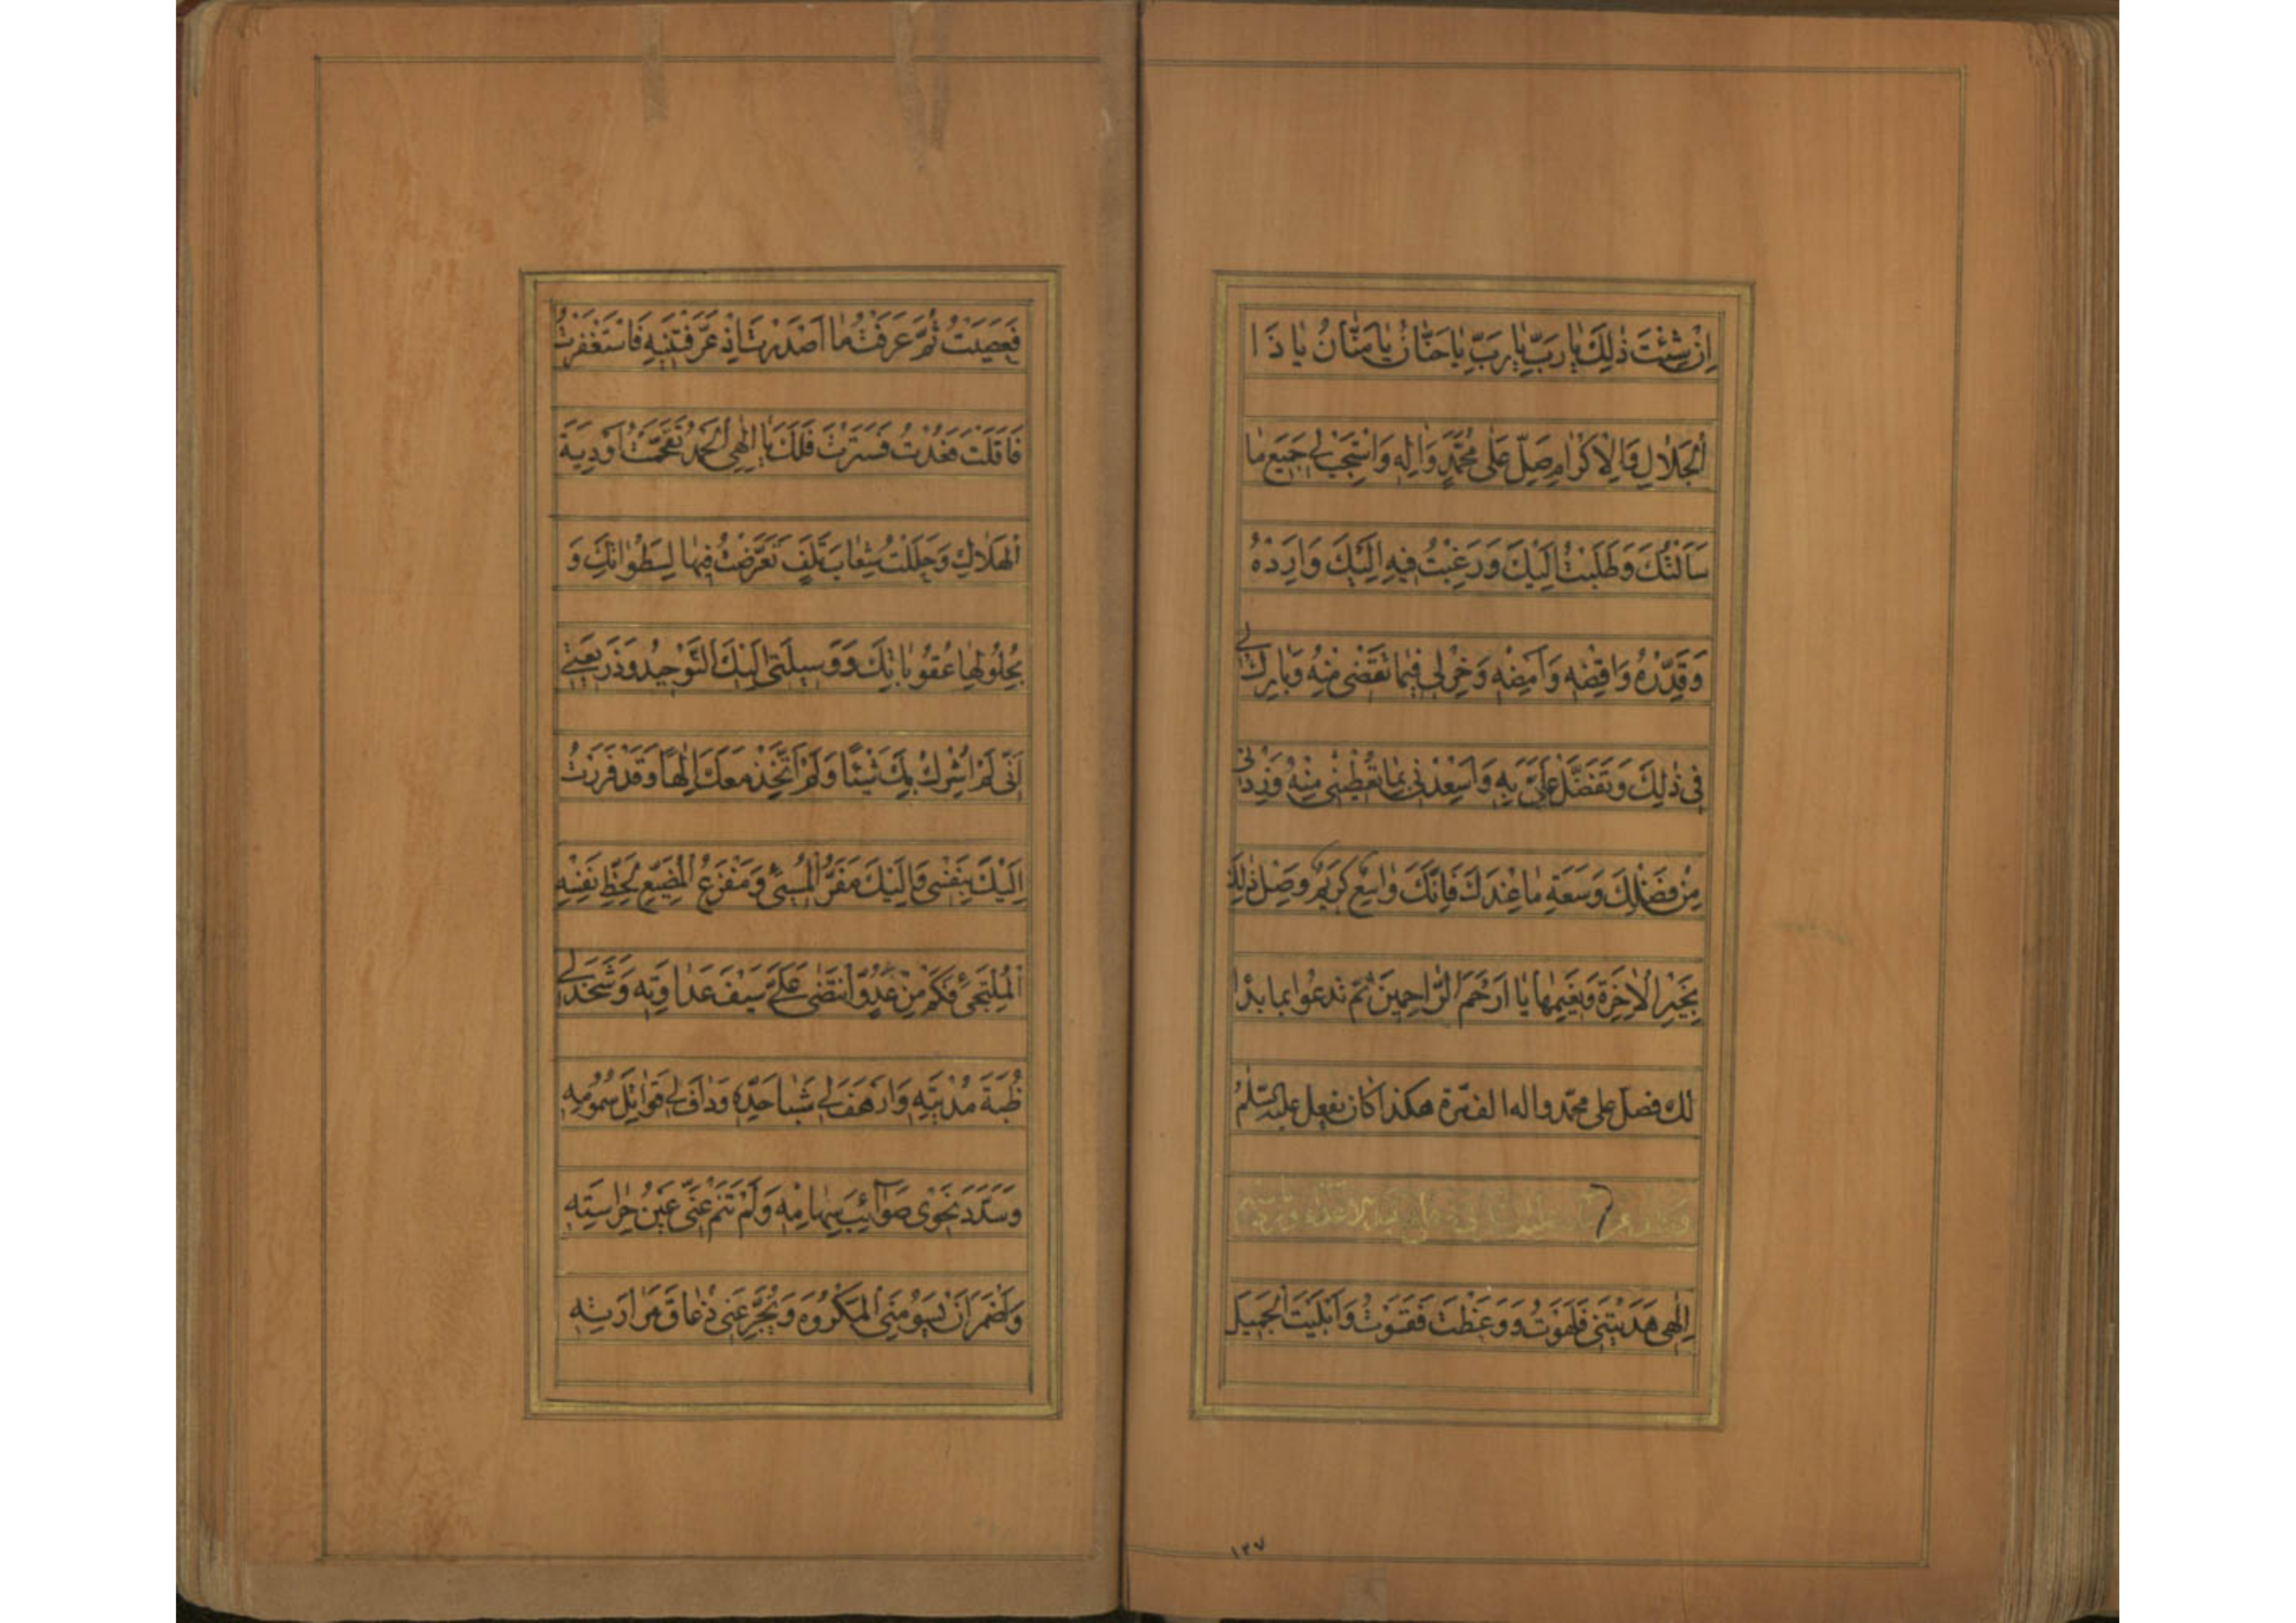 اِنْ شِئْتَ ذٰلِكَ يٰا رَبِّ يٰا رَبِّ يٰا حَنّٰانُ يٰا مَنّٰانُ يٰا ذَا
الْجَلٰالِ وَالْاِكْرٰامِ صَلِّ عَلٰى مُحَمَّدٍ وَاٰلِهِ وَاسْتَجِبْ لِي جَمِيعَ مٰا
سَاَلْتُكَ وَطَلَبْتُ اِلَيْكَ وَرَغِبْتُ فِيهِ اِلَيْكَ وَاَرِدْهُ
وَقَدِّرْهُ وَاقْضِهِ وَاَمْضِهِ وَخِرْ لِي فِيمٰا تَقْضِى مِنْهُ وَبٰارِكْ لِي
فِى ذٰلِكَ وَتَفَضَّلْ عَلَىَّ بِهِ وَاَسْعِدْنِى بِمٰا تُعْطِينِى مِنْهُ وَزِدْنِى
مِنْ فَضْلِكَ وَسَعَةِ مٰا عِنْدَكَ فَاِنَّكَ وٰاسِعٌ كَرِيمٌ وَصِلْ ذٰلِكَ
بِخَيْرِ الْاٰخِرَةِ وَنَعِيمِهٰا يٰا اَرْحَمَ الرّٰاحِمِينَ ثمّ تدعوا بما بدا
لك فصلّ على محمّد واله الف مرّة هكذا كان يفعل عليه السّلم
اِلٰهِى هَدَيْتَنِى فَلَهَوْتُ وَوَعَظْتَ فَقَسَوْتُ وَاَبْلَيْتَ الْجَمِيلَ
فَعَصَيْتُ ثُمَّ عَرَفْتُ مٰا اَصْدَرْتَ اِذْ عَرَّفْتَنِيهِ فَاسْتَغْفَرْتُ
فَاَقَلْتَ فَعُدْتُ فَسَتَرْتَ فَلَكَ يٰا اِلٰهِى الْحَمْدُ تَقَحَّمْتُ اَوْدِيَةَ
الْهَلٰاكِ وَحَلَلْتُ شِعٰابَ تَلَفٍ تَعَرَّضْتُ فِيهٰا لِسَطَوٰاتِكَ وَ
بِحُلُولِهٰا عُقُوبٰاتِكَ وَوَسِيلَتِى اِلَيْكَ التَّوْحِيدُ وَذَرِيعَتِى
اَنِّى لَمْ اُشْرِكْ بِكَ شَيْئًا وَلَمْ اَتَّخِذْ مَعَكَ اِلٰهًا وَقَدْ فَرَرْتُ
اِلَيْكَ بِنَفْسِى وَاِلَيْكَ مَفَرُّ الْمُسِىءِ وَمَفْزَعُ الْمُضَيِّعِ لِحَظِّ نَفْسِهِ
الْمُلْتَجِئِ فَكَمْ مِنْ عَدُوٍّ انْتَضٰى عَلَىَّ سَيْفَ عَدٰاوَتِهِ وَشَحَذَ لِي
ظُبَةَ مُدْيَتِهِ وَاَرْهَفَ لِي شَبٰا حَدِّهِ وَدٰافَ لِي قَوٰاتِلَ سُمُومِهِ
وَسَدَّدَ نَحْوِى صَوٰائِبَ سِهٰامِهِ وَلَمْ تَنَمْ عَنِّى عَيْنُ حِرٰاسَتِهِ
وَاَضْمَرَ اَنْ يَسُومَنِى الْمَكْرُوهَ وَيُجَرِّعَنِى ذُعٰاقَ مَرٰارَتِهِ
١٣٧